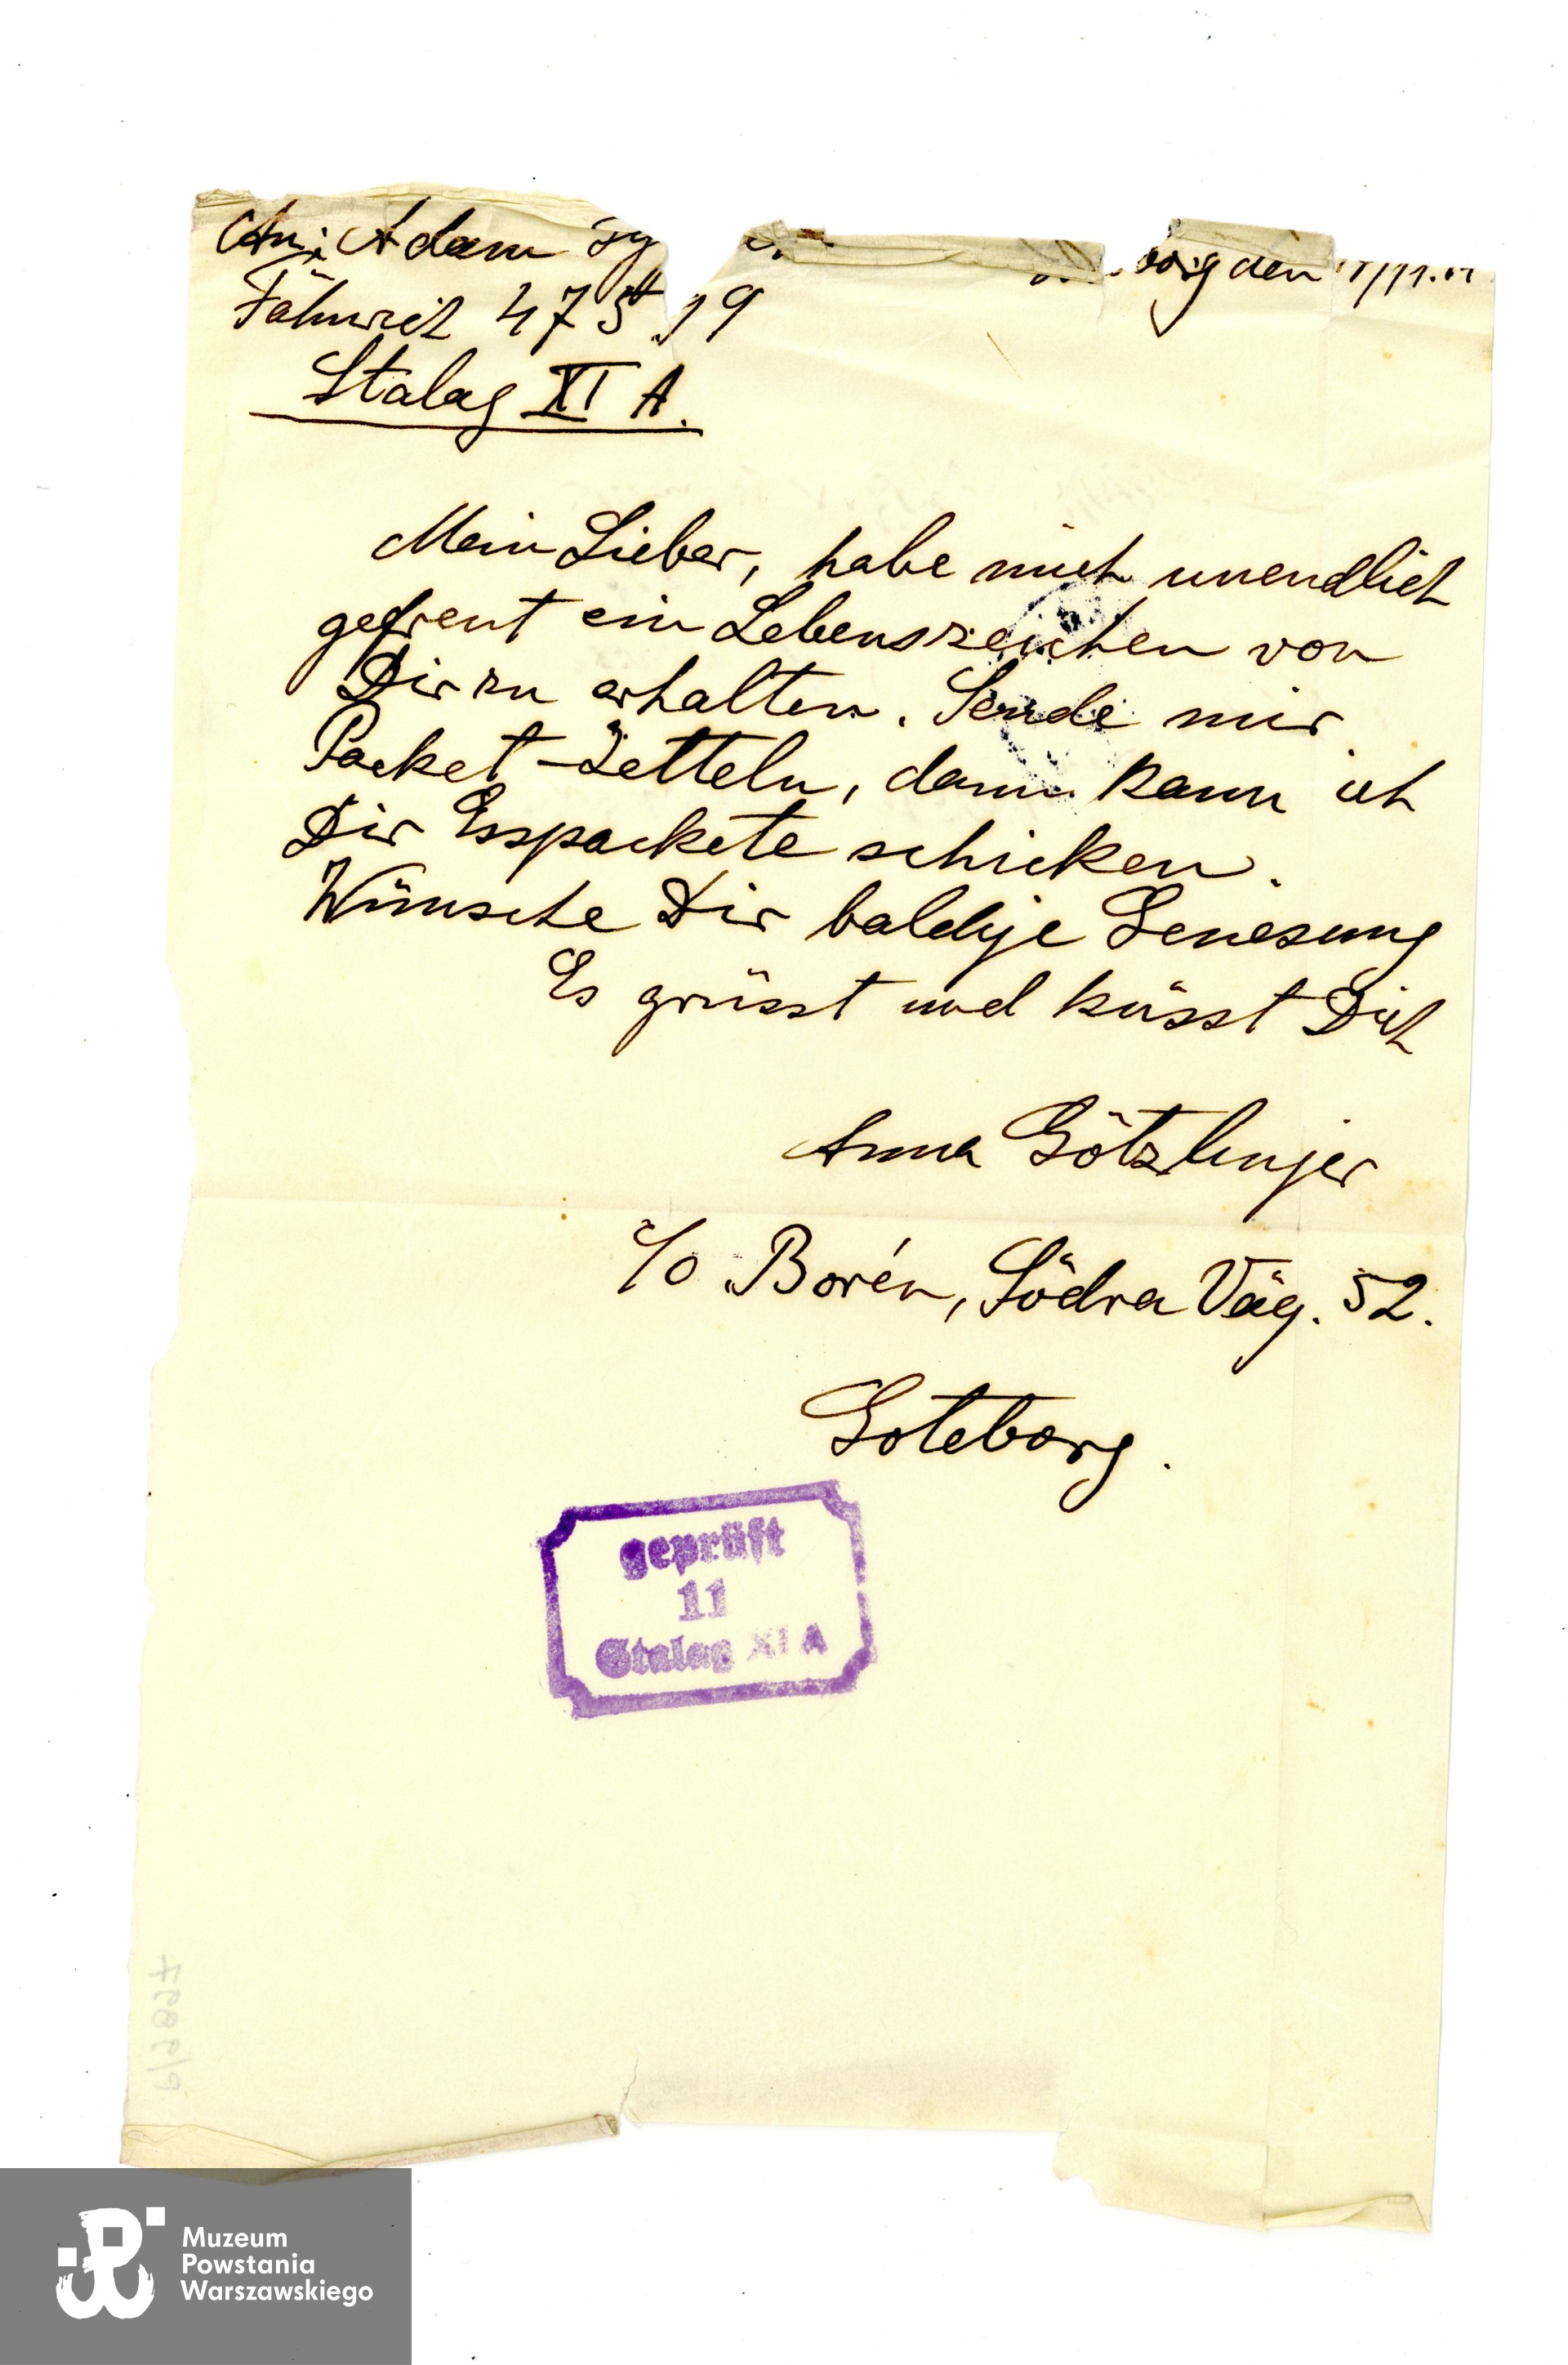 An: Adam
borg den
Fähnrich 475 19
Stalag XI A.
Mein Lieber, habe mich unendlich
gefreut ein Lebenszeichen von
Dir zu erhalten. Sende mir
Packet-Zetteln, dann kann ich
Dir Esspackete schicken.
Wünsche Dir baldige Genesung
Es grüsst und küsst Dich
Anna Götzlinger
c/o Borén, Södra Väg. 52.
Goteborg.
geprüft
11
Stalag XI A
P/9897
Muzeum
Powstania
Warszawskiego